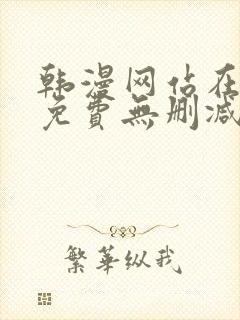 韩漫网站在
免費無删减
繁華纵我